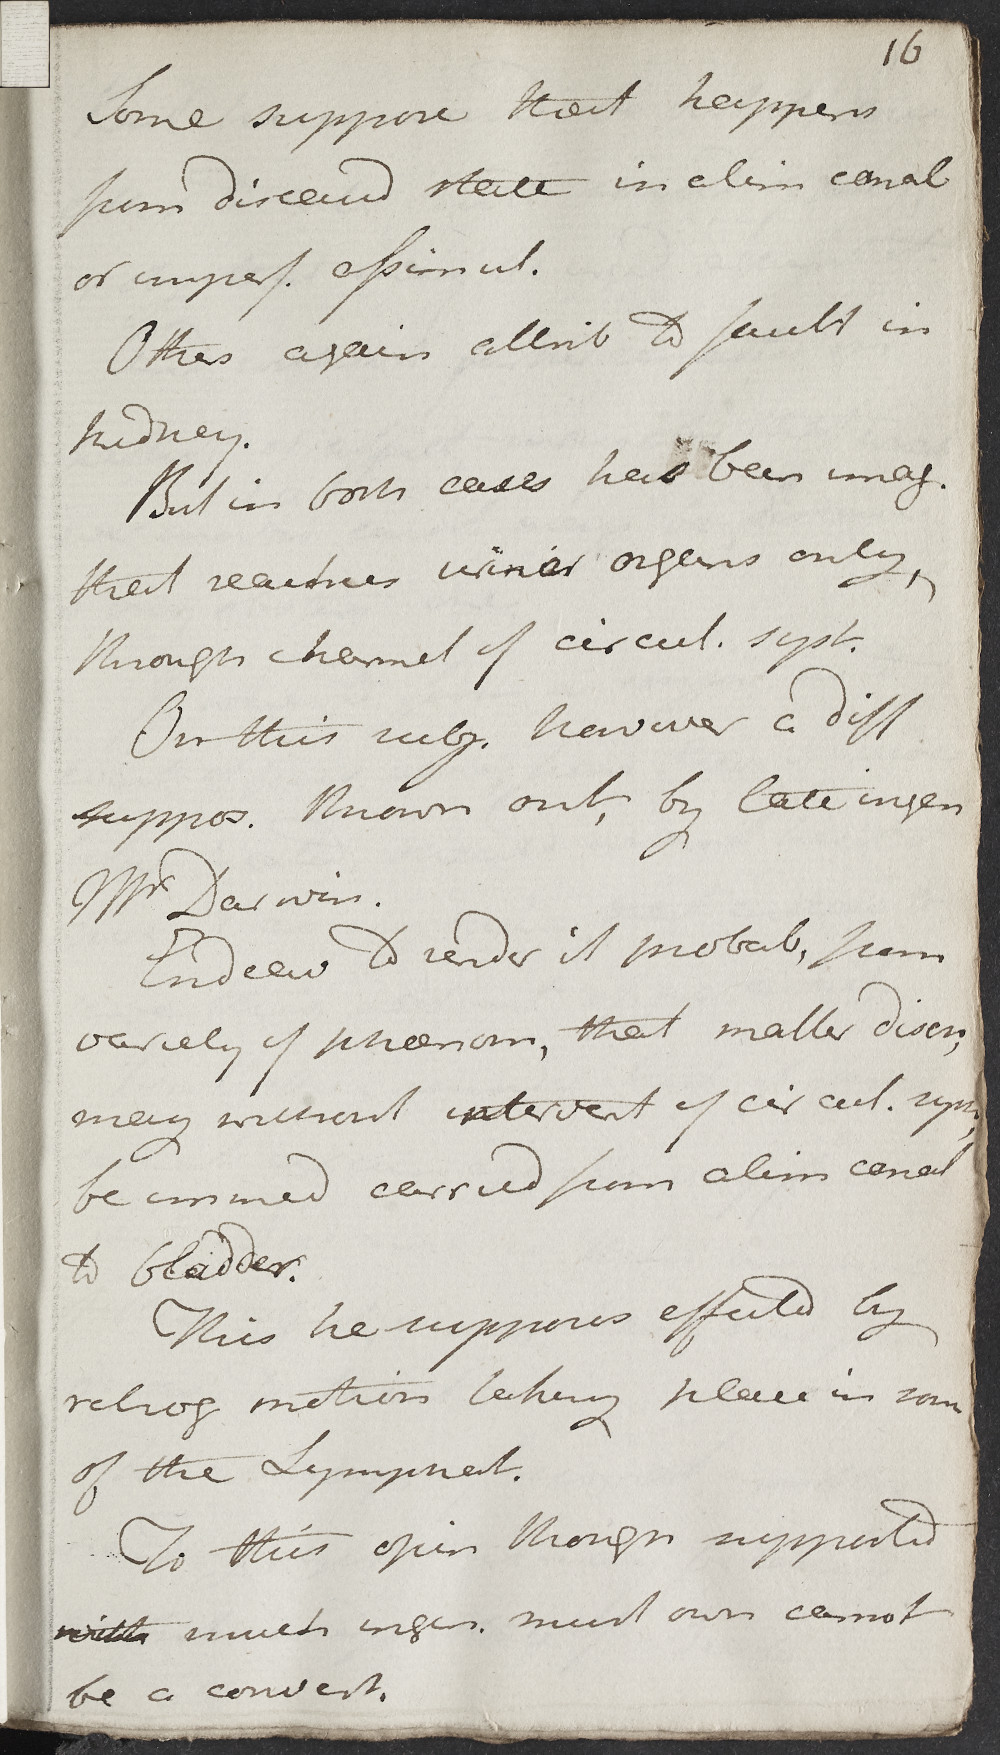 16
Some suppose that happens
from diseased state in alim canal
or imperf. assimul.
Others again attrib to fault in
kidney.
But in both cases has been imag.
that reaches urinar organs only,
through channel of circul. syst.
On this subj. however a diff
suppos. thrown out, by late ingen
Mr Darwin.
Endeav to render it probab, from
variety of phænom, that matter
may without intervent of circul. syst,
be immed carried from alim canal
to bladder.
This he supposes effected by
retrog motion taking place in some
of the Lymphat.
To this opin though supported
with much ingen. must own cannot
be a convert.